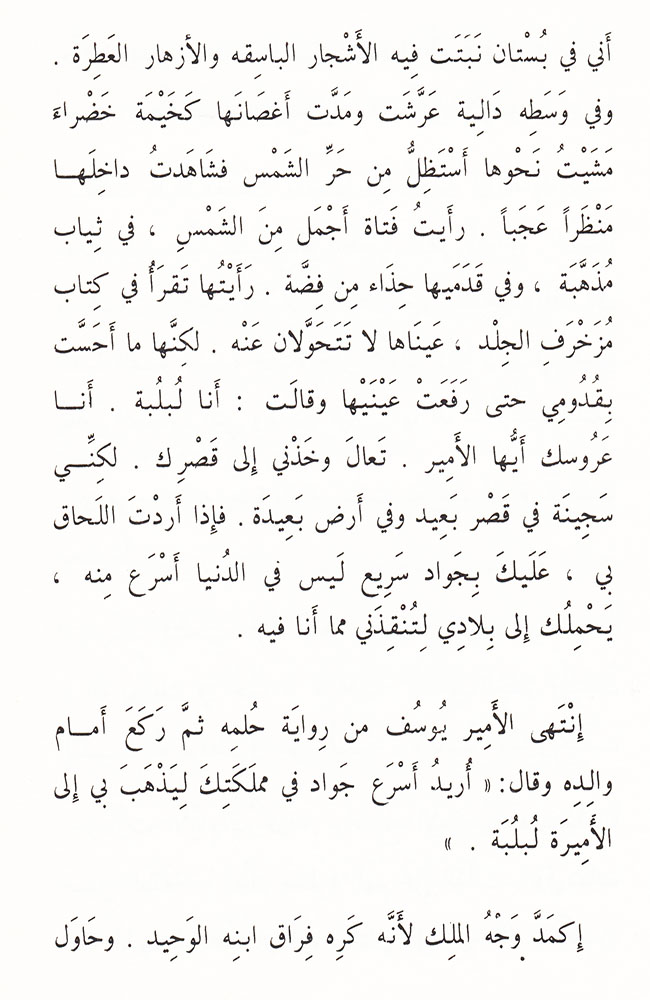 أَني في بُسْتان نَبَتَت فِيه الأَشْجار الباسِقه والأزهار العَطِرَة .
وفي وَسَطِه دَالِية عَرَّشَت ومَدَّت أَغصَانَها كَخَيْمَة خَضْراءَ
مَشَيْتُ نَحْوها أَسْتَظِلُّ مِن حَرِّ الشَمْس فشَاهَدتُ داخِلَها
مَنْظَراً عَجَباً . رأَيتُ فَتاة أَجْمَل مِنَ الشَمْسِ ، في ثِياب
مُذَهَّبَة ، وفي قَدَمَيها حِذَاء مِن فِضَّة . رَأَيْتُها تَقرَأُ في كِتاب
مُزَخْرَفِ الجِلْد ، عَينَاها لا تَتَحَوَّلان عَنْه . لكِنَّها ما أَحَسَّت
بِقُدُومِي حتى رَفَعَتْ عَيْنَيْها وقالَت : أَنا لُبلُبة . أَنا
عَرُوسك أَيُّها الأَمِير . تَعالَ وخَذْني إِلى قَصْرِك . لكِنِّي
سَجِينَة في قَصْر بَعِيد وفي أَرض بَعِيدَة . فإِذا أَردْتَ اللَحاق
بي ، عَلَيكَ بِجَواد سَرِيع لَيس في الدُنيا أَسْرَع مِنه ،
يَحْمِلُك إِلى بِلادِي لِتُنْقِذَني مما أَنا فيه .
إِنْتَهى الأَمِير يُوسُف من رِوايَة حُلمِه ثمَّ رَكَعَ أَمام
والِدِه وقال: « أُريدُ أَسْرَع جَواد في مملَكَتِكَ لِيَذْهَبَ بي إِلى
الأَمِيرَة لُبلُبَة . »
إِكمَدَّ وَجْهُ الملِك لأَنَّه كَرِه فِرَاق ابنِه الوَحِيد . وحَاوَل